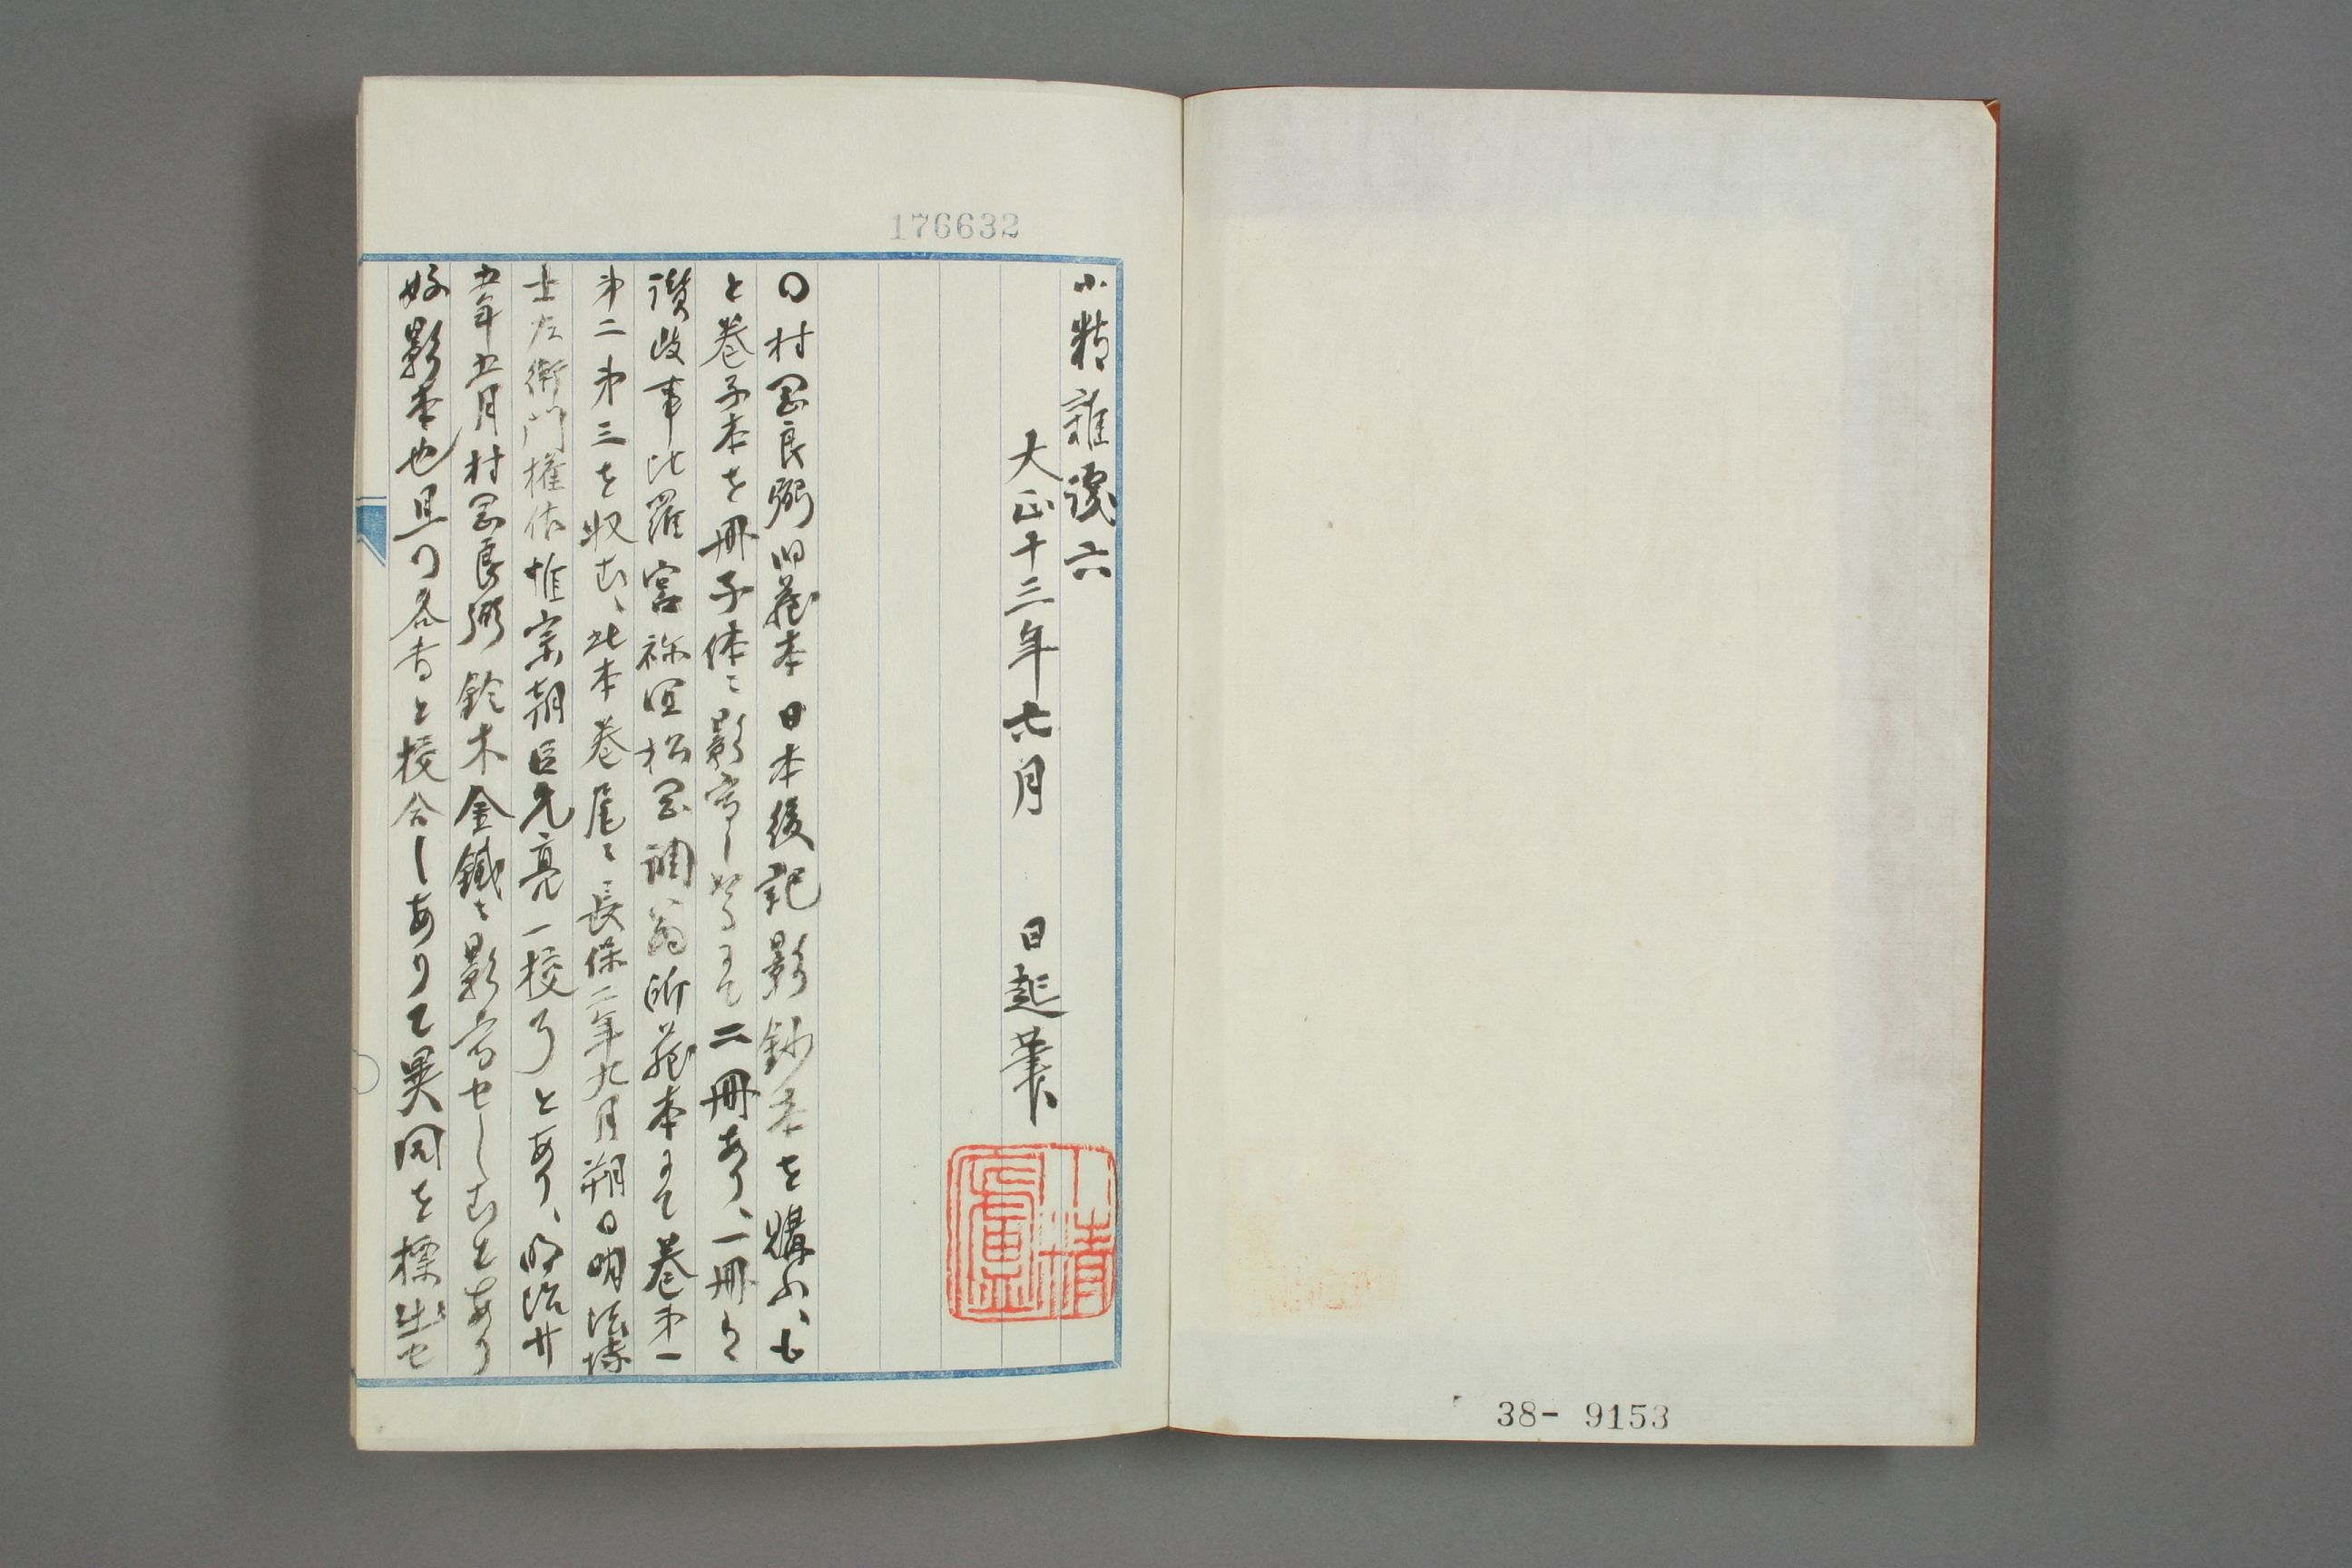 小精雑禄六
大正十三年六月 日起筆
〇村岡良弼旧蔵本日本後記影鈔本を購ふ、も
と巻子本を冊子体に影寫しゝものにて二冊あり、一冊は
讃岐事比羅宮祢宜松岡調翁所蔵本にて巻第一
第二第三を収む、此本巻尾に長保二年九月朔日明法博
士左衛門権佐惟宗朝臣允亮一校了とあり、明治廿
五年五月村岡良弼鈴木金鐵に影寫せしむとあり
好影本也且つ各書と校合しありて異同を標出せ
176632
38- 9153